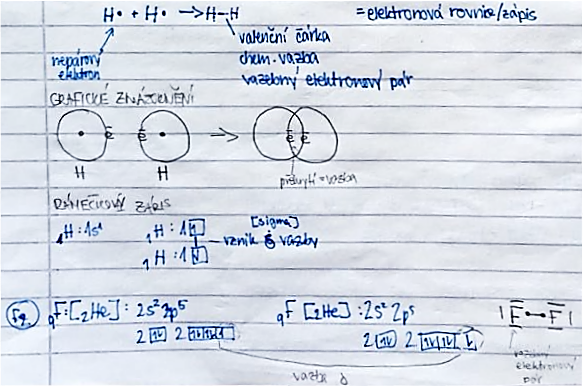 H• + H• → H–H = elektronová rovnice/zápis
nepárový elektron
valenční čárka
chem. vazba
vazebný elektronový pár
GRAFICKÉ ZNÁZORNĚNÍ
e e → e e
H H
překrytí = vazba
RÁMEČKOVÝ ZÁPIS
₁H: 1s¹ ₁H: 1 ↑ [sigma]
vznik σ vazby
₁H: 1 ↓
F₂ ₉F: [₂He]: 2s² 2p⁵ ₉F [₂He]: 2s² 2p⁵ |F̅–F̅|
2 ↑↓ 2 ↑↓ ↑↓ ↑ 2 ↑↓ 2 ↑↓ ↑↓ ↓
elektronový
pár
vazba σ